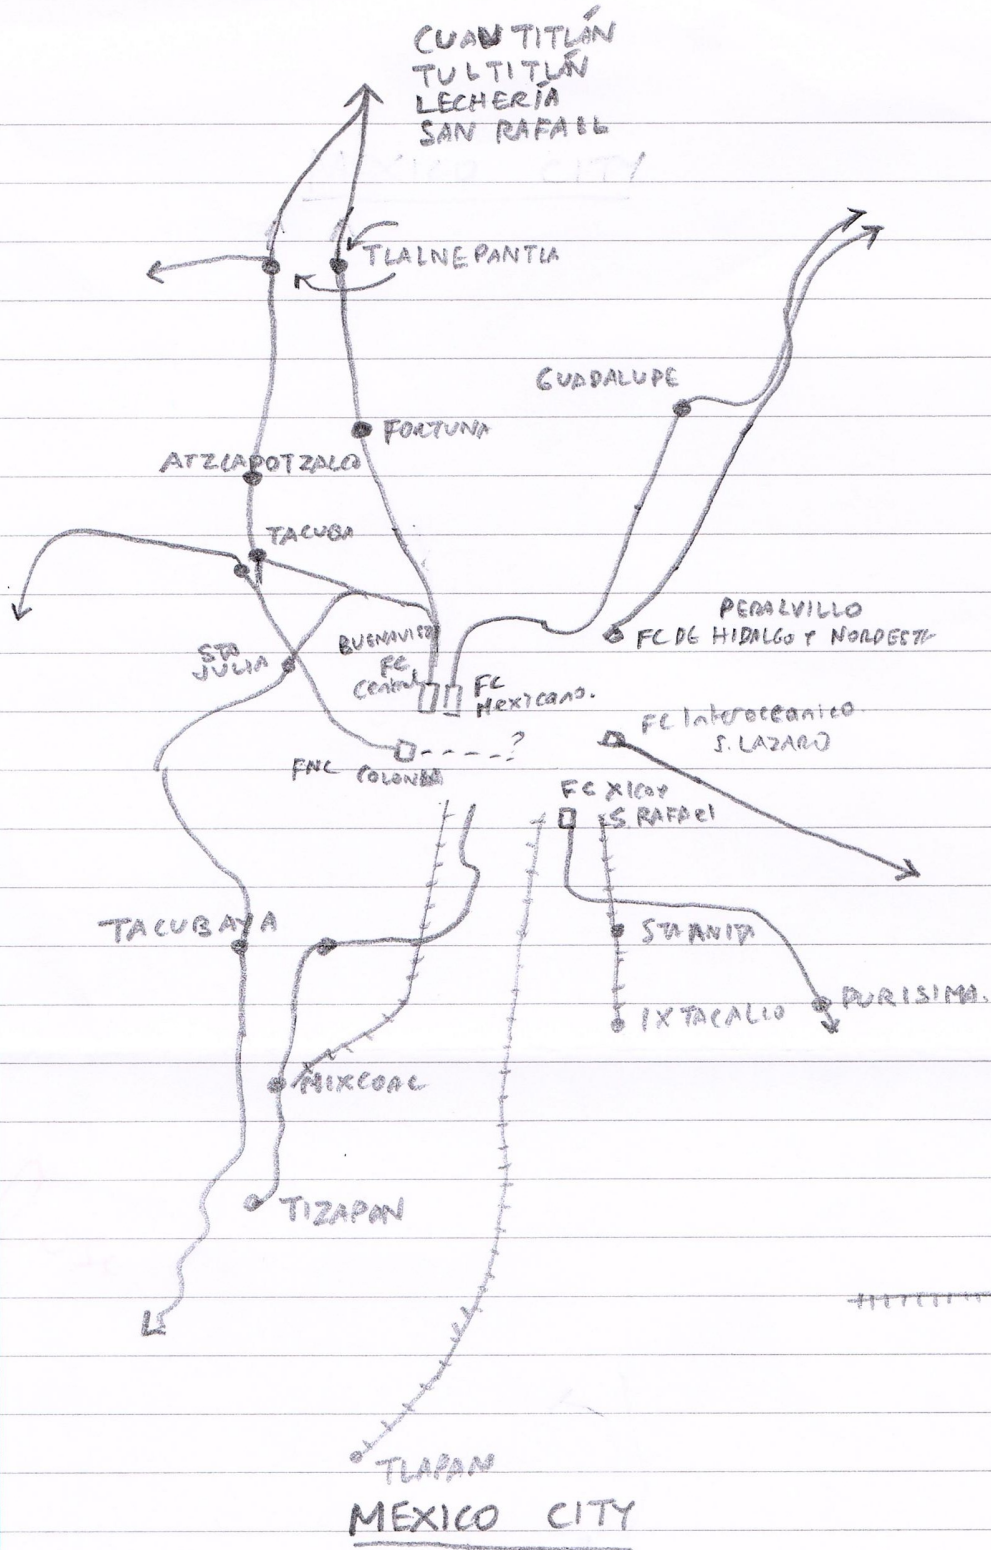 CUAUTITLÁN
TULTITLÁN
LECHERÍA
SAN RAFAEL
TLALNEPANTLA
GUADALUPE
FORTUNA
ATZCAPOTZALCO
TACUBA
PERALVILLO
FC DE HIDALGO Y NORDESTE
BUENAVISTA
FC
Central
STA
JULIA
FC
Mexicano.
FC Interoceanico
S. LAZARO
?
FNC COLONIA
FC XICO Y
S. RAFAEL
TACUBAYA
STA ANITA
PURISIMA.
IXTACALLO
MIXCOAC
TIZAPAN
TLAPAN
MEXICO CITY